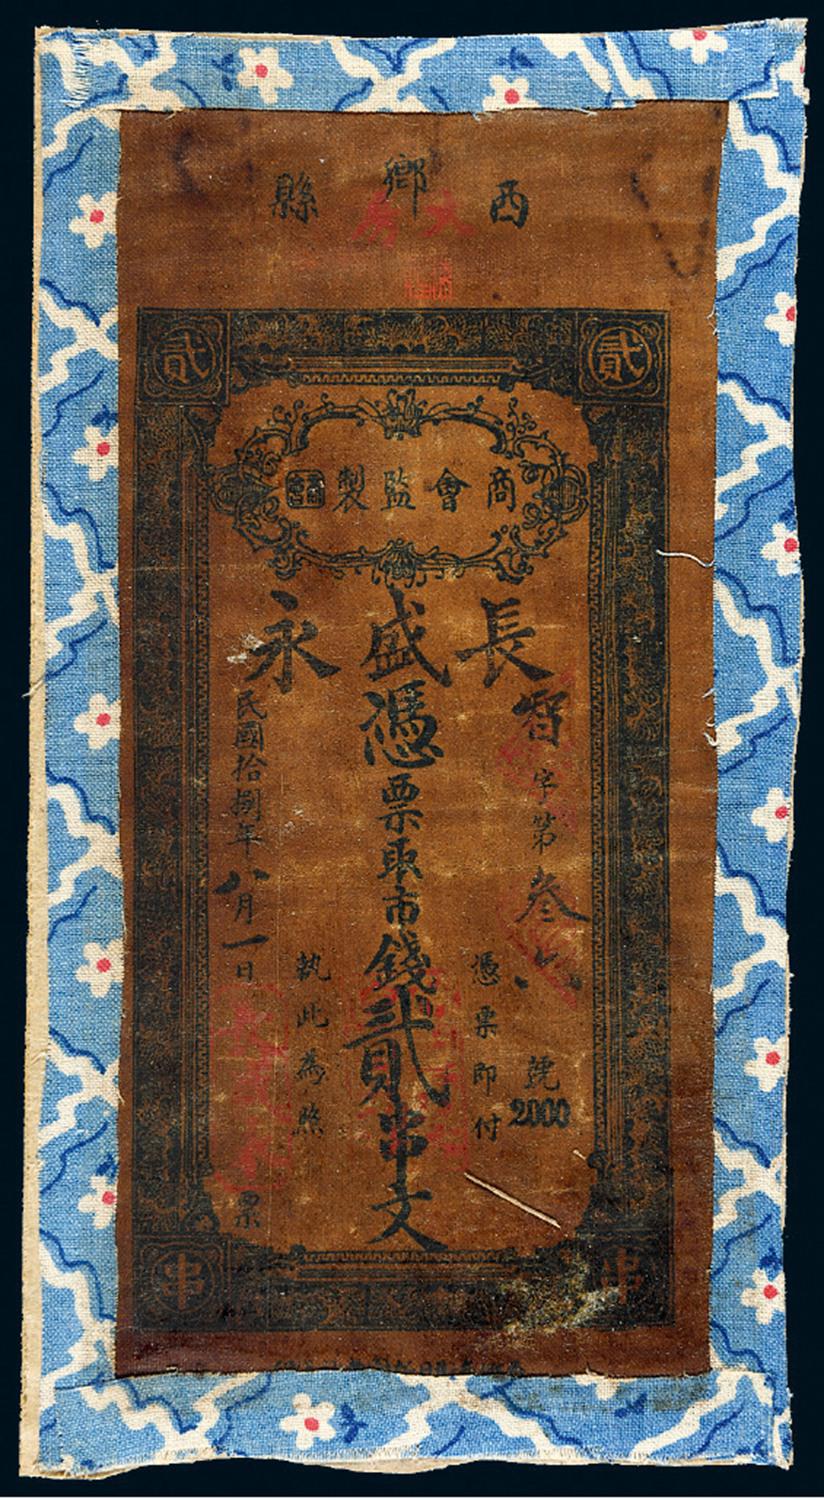 西鄉縣
貳
貳
商會監製
長盛永
智字第叁號
2000
憑票即付
憑票取市錢貳串文
執此為照
民國拾捌年八月一日票
串
串